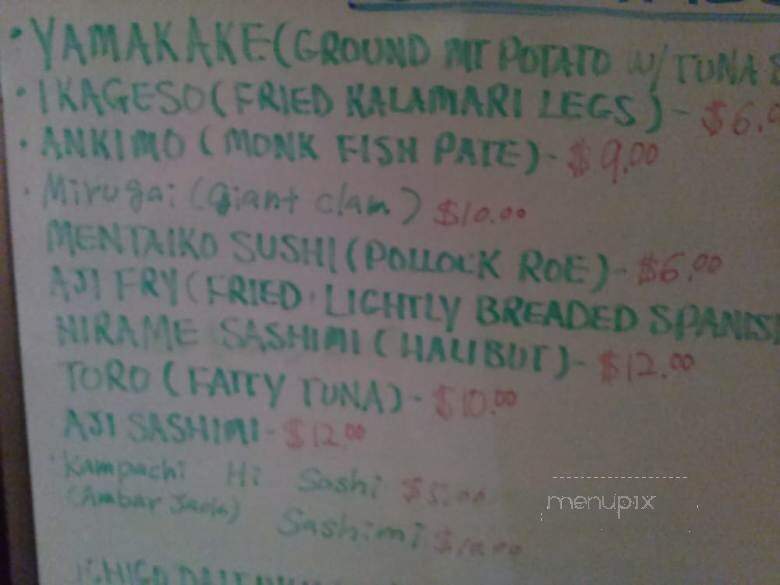 • YAMAKAKE (GROUND MT POTATO W/ TUNA
• IKAGESO (FRIED KALAMARI LEGS) - $6.
• ANKIMO (MONK FISH PATE) - $9.00
• Mirugai (giant clam) $10.00
MENTAIKO SUSHI (POLLOCK ROE) - $6.00
AJI FRY (FRIED · LIGHTLY BREADED SPANIS
HIRAME SASHIMI (HALIBUT) - $12.00
TORO (FATTY TUNA) - $10.00
AJI SASHIMI - $12.00
Kampachi Hi Sashi $5.00
(Ambar Jack) Sashimi
menupix